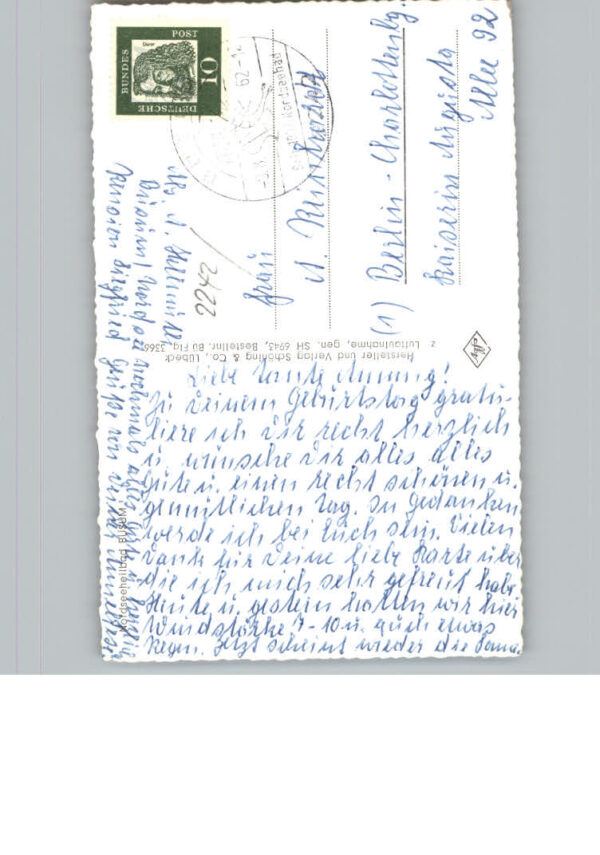 DEUTSCHE
BUNDES
POST
Dürer
10
62-1
Nordseebad
Abs. A.
Büsum/Nordsee
2242
Frau
A.
(1) Berlin - Charlottenbg.
Kaiserin Augusta
Allee 92
Hersteller und Verlag Schöning & Co., Lübeck
z Luftaufnahme, gen. SH 6943, Bestellnr. Bü Flg. 3366
Nordseeheilbad BÜSUM
Liebe Tante Anning!
Zu Deinem Geburtstag gratu-
liere ich Dir recht herzlich
u. wünsche Dir alles alles
Gute u. einen recht schönen u.
gemütlichen Tag. In Gedanken
werde ich bei Euch sein. Vielen
Dank für Deine liebe Karte über
die ich mich sehr gefreut habe.
Heute u. gestern hatten wir hier
Windstärke 7-10 u. auch etwas
Regen. Jetzt scheint wieder die Sonne.
nochmals alles Gute u. herzliche
Grüße von Deiner Annelies